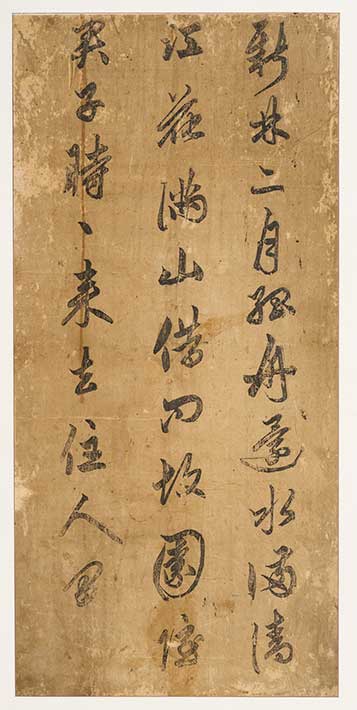 新林二月孤舟還水滿清
江花滿山借問故園隱
君子時々來去住人間